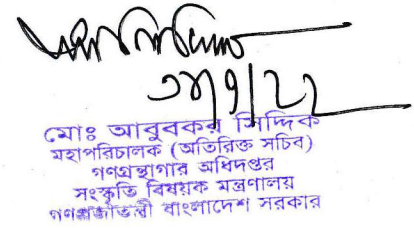 মোঃ আবুবকর সিদ্দিক
মহাপরিচালক (অতিরিক্ত সচিব)
গণগ্রন্থাগার অধিদপ্তর
সংস্কৃতি বিষয়ক মন্ত্রণালয়
গণপ্রজাতন্ত্রী বাংলাদেশ সরকার